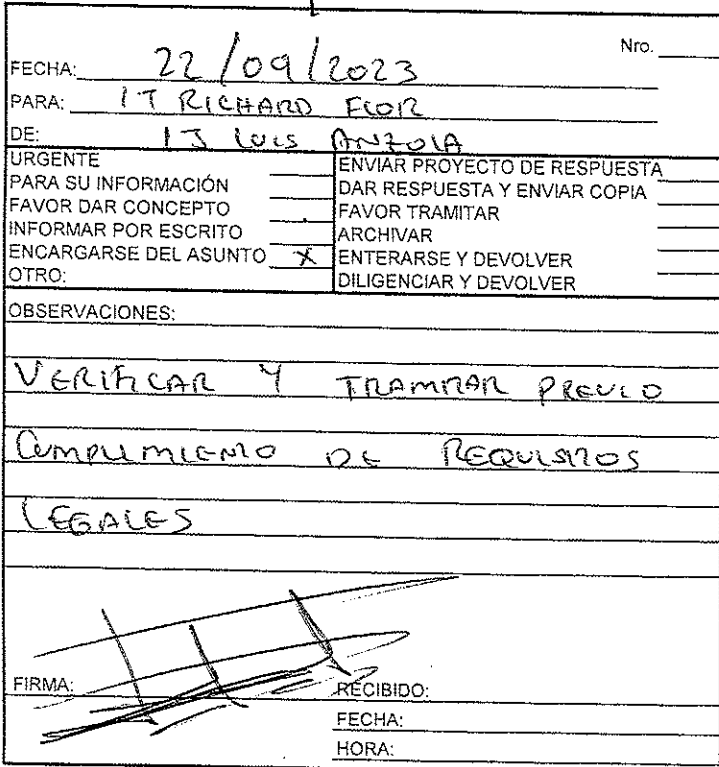 Nro.
FECHA: 22/09/2023
PARA: IT RICHARD FLOR
DE: IJ LUIS ANZOLA
URGENTE
PARA SU INFORMACIÓN
FAVOR DAR CONCEPTO
INFORMAR POR ESCRITO
ENCARGARSE DEL ASUNTO X
OTRO:
ENVIAR PROYECTO DE RESPUESTA
DAR RESPUESTA Y ENVIAR COPIA
FAVOR TRAMITAR
ARCHIVAR
ENTERARSE Y DEVOLVER
DILIGENCIAR Y DEVOLVER
OBSERVACIONES:
VERIFICAR Y TRAMITAR PREVIO
CUMPLIMIENTO DE REQUISITOS
LEGALES
FIRMA:
RECIBIDO:
FECHA:
HORA: